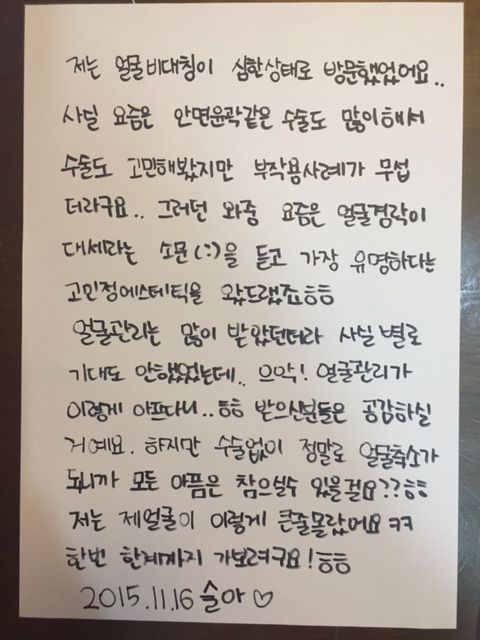 저는 얼굴비대칭이 심한상태로 방문했었어요..
사실 요즘은 안면윤곽같은 수술도 많이해서
수술도 고민해봤지만 부작용사례가 무섭
더라구요.. 그러던 와중 요즘은 얼굴경락이
대세라는 소문(:)을 듣고 가장 유명하다는
고민정에스테틱을 왔드랬죠ㅎㅎ
얼굴관리는 많이 받았던터라 사실 별로
기대도 안했었는데.. 으악! 얼굴관리가
이렇게 아프다니..ㅎㅎ 받으신분들은 공감하실
거예요. 하지만 수술없이 정말로 얼굴축소가
되니까 모든 아픔은 참으실수 있을걸요??ㅎㅎ
저는 제얼굴이 이렇게 큰줄몰랐어요 ㅋㅋ
한번 한계까지 가보려구요!ㅎㅎ
2015.11.16 슬아♡